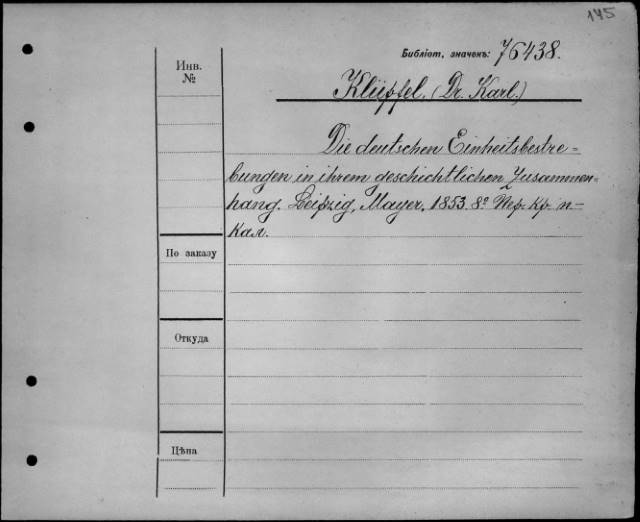 145
Библіот. значекъ: 76438.
Инв.
№
Klüpfel, (Dr. Karl.)
Die deutschen Einheitsbestre-
bungen in ihrem geschichtlichen Zusammen-
hang. Leipzig, Mayer, 1853. 8º Пер. кр. п-
кал.
По заказу
Откуда
Цѣна